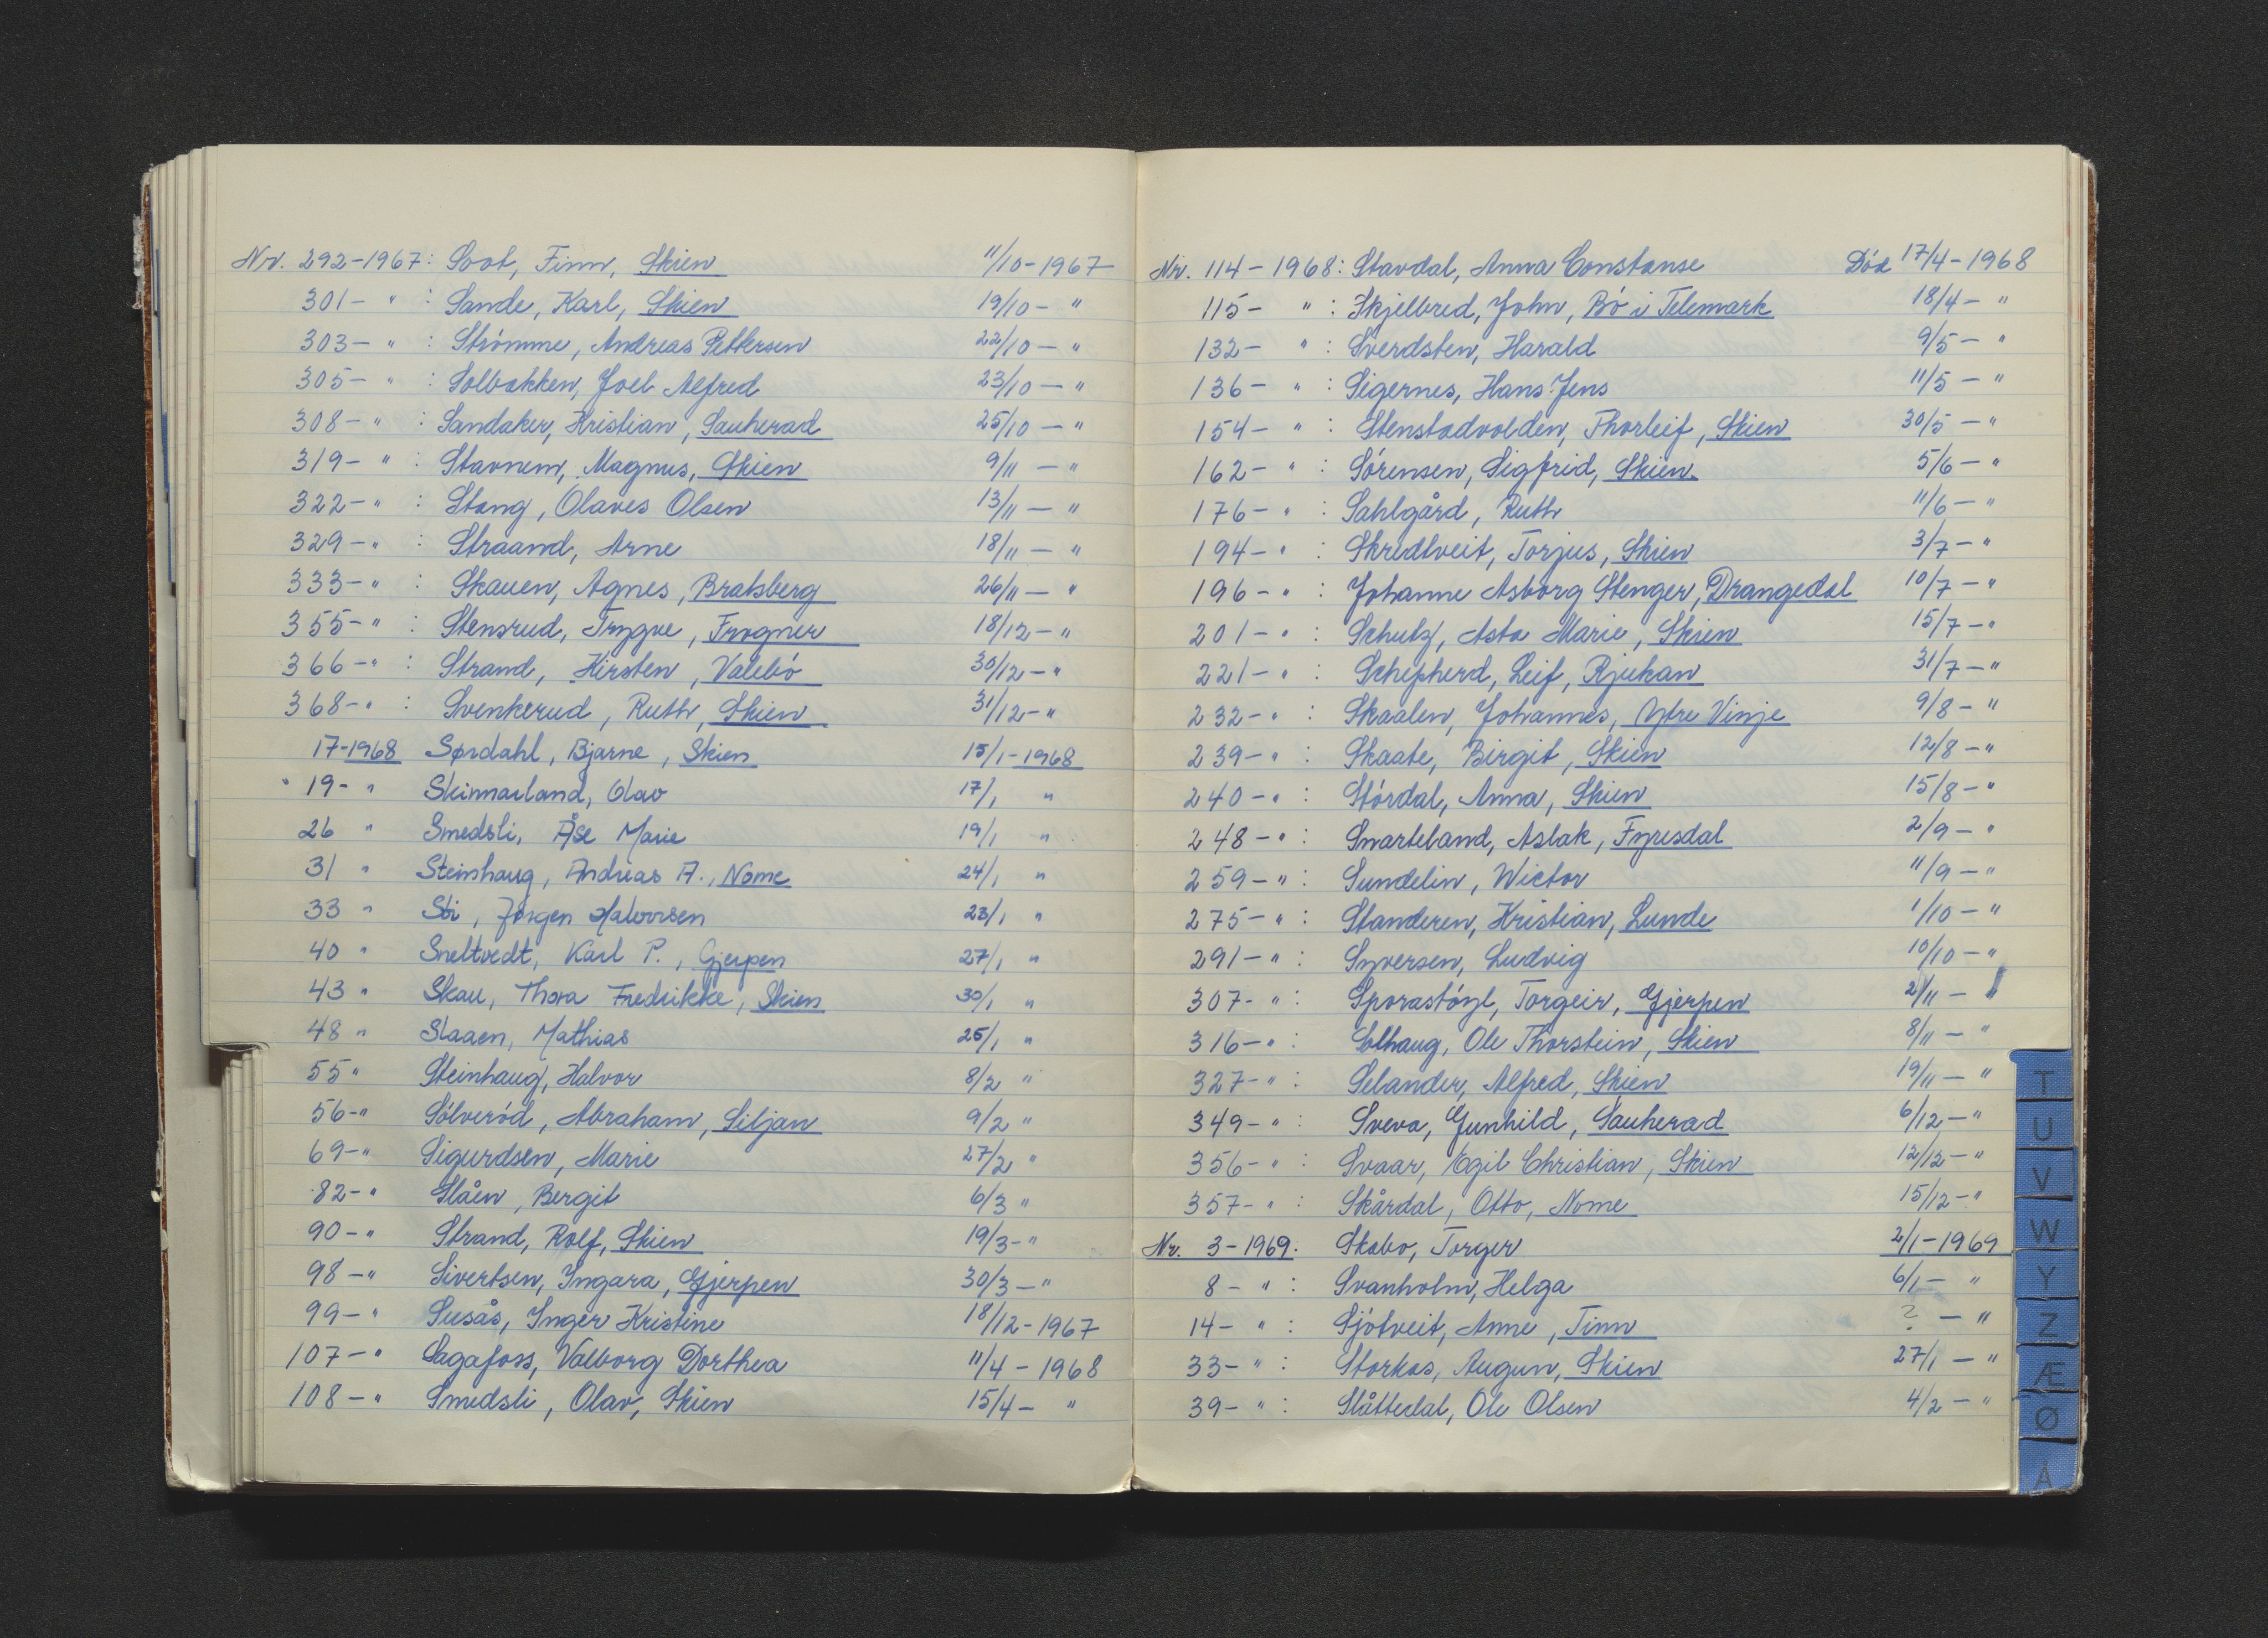 Nr. 292-1967: Soot, Finn, Skien 11/10-1967
301- " : Sande, Karl, Skien 19/10- "
303- " : Strömme, Andreas Pettersen 22/10- "
305- " : Solbakken, Joel Alfred 23/10- "
308- " : Sandaker, Kristian, Sauherad 25/10- "
319- " : Stavnem, Magnus, Skien 9/11- "
322- " : Stang, Olaves Olsen 13/11- "
329- " : Straand, Arne 18/11- "
333- " : Skauen, Agnes, Bratsberg 26/11- "
355- " : Stensrud, Trygve, Frogner 18/12- "
366- " : Strand, Kirsten, Valebö 30/12- "
368- " : Svenkerud, Ruth, Skien 31/12- "
17-1968 Sørdahl, Bjarne, Skien 15/1-1968
" 19- " Skinnarland, Olav 17/1 "
26 " Smedsli, Åse Marie 19/1 "
31 " Steinhaug, Andreas A., Nome 24/1 "
33 " Sti, Jørgen Halvorsen 23/1 "
40 " Sneltvedt, Karl P., Gjerpen 27/1 "
43 " Skau, Thora Fredrikke, Skien 30/1 "
48 " Slaaen, Mathias 25/1 "
55 " Steinhaug, Halvor 8/2 "
56- " Sölveröd, Abraham, Siljan 9/2 "
69- " Sigurdsen, Marie 27/2 "
82- " Slåen, Bergit 6/3 "
90- " Strand, Rolf, Skien 19/3- "
98- " Sivertsen, Yngara, Gjerpen 30/3- "
99- " Susås, Inger Kristine 18/12-1967
107- " Sagafoss, Valborg Dorthea 11/4-1968
108- " Smedsli, Olav, Skien 15/4- "
Nr. 114-1968: Stavdal, Anna Constanse Död 17/4-1968
115- " : Skjelbred, John, Bö i Telemark 18/4- "
132- " : Sverdsten, Harald 9/5- "
136- " : Sigernes, Hans Jens 11/5- "
154- " : Stenstadvolden, Thorleif, Skien 30/5- "
162- " : Sörensen, Sigfrid, Skien 5/6- "
176- " : Sahlgård, Ruth 11/6- "
194- " : Skredtveit, Torjus, Skien 3/7- "
196- " : Johanne Asborg Stenger, Drangedal 10/7- "
201- " : Schulz, Asta Marie, Skien 15/7- "
221- " : Schepherd, Leif, Rjukan 31/7- "
232- " : Skaalen, Johannes, Ytre Vinje 9/8- "
239- " : Skaate, Birgit, Skien 12/8- "
240- " : Stördal, Anna, Skien 15/8- "
248- " : Snarteland, Aslak, Fyresdal 2/9- "
259- " : Sundelin, Wictor 11/9- "
275- " : Standeren, Kristian, Lunde 1/10- "
291- " : Syversen, Ludvig 10/10- "
307- " : Sporastöyl, Torgeir, Gjerpen 2/11- "
316- " : Solhaug, Ole Thorstein, Skien 8/11- "
327- " : Selander, Alfred, Skien 19/11- "
349- " : Sveva, Gunhild, Sauherad 6/12- "
356- " : Svaar, Egil Christian, Skien 12/12- "
357- " : Skårdal, Otto, Nome 15/12- "
Nr. 3-1969. Skabo, Torger 2/1-1969
8- " : Svanholm, Helga 6/1- "
14- " : Sjötveit, Anne, Tinn ? - "
33- " : Storkås, Augun, Skien 27/1- "
39- " : Slåttedal, Ole Olsen 4/2- "
T
U
V
W
Y
Z
Æ
Ø
Å